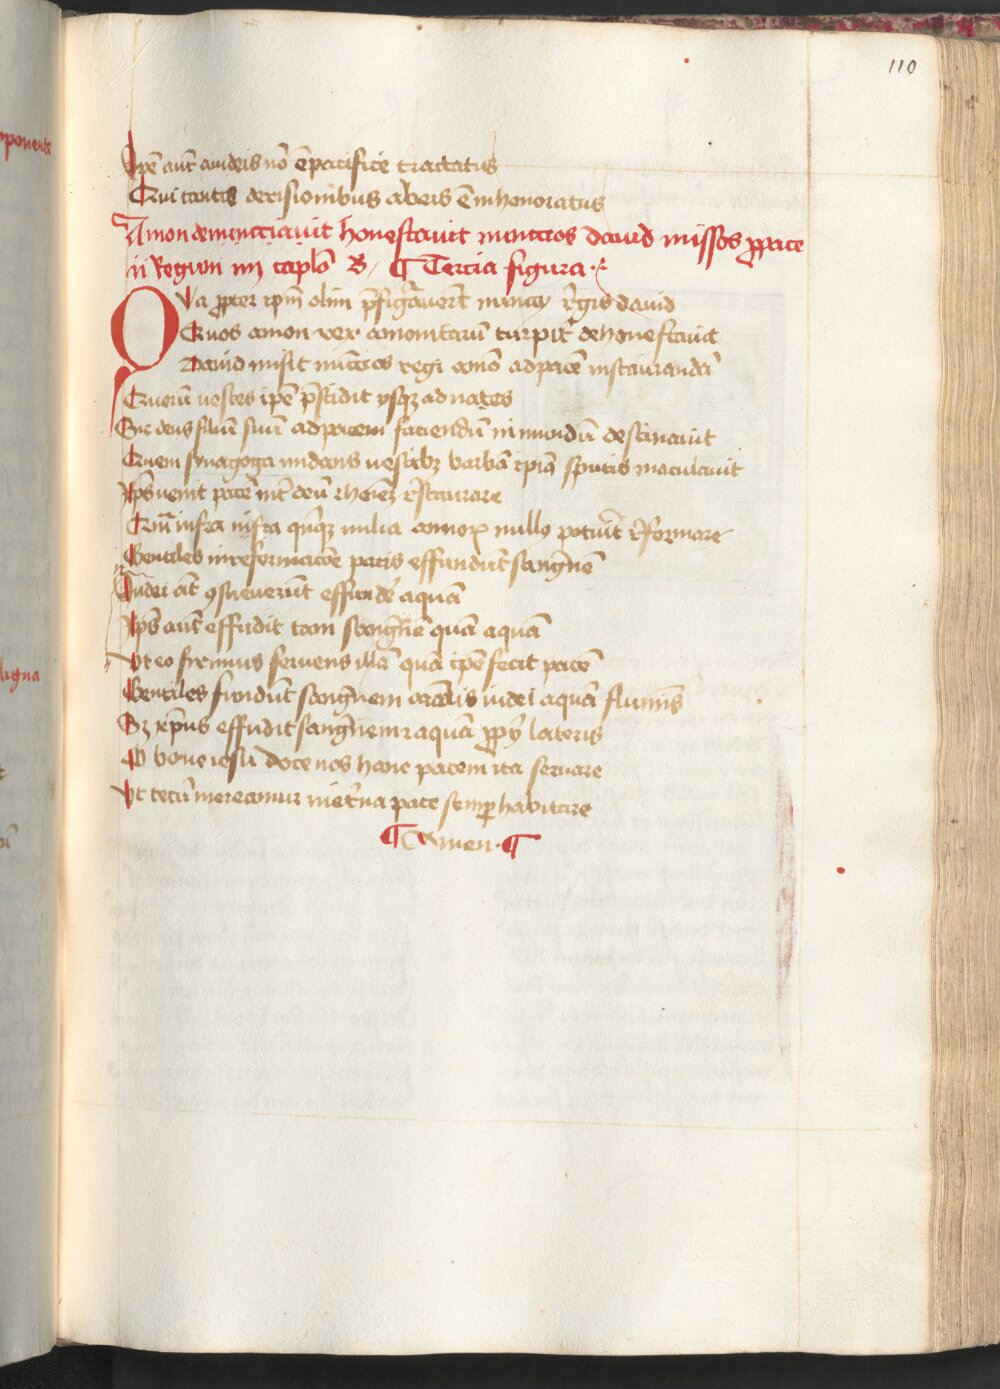 110
ponente
Ipẽ aut̃ a iudeis nõ ẽ pacifice tractatus
Qui tantis derisionibus ab eis ẽ inhonoratus
Amon denunciauit honestauit nuncios dauid missos ꝓ pace
ii Regum capl̃o B ¶ Tercia figura
QVa ꝓpter ip̃m olim p̃figurauer̃t nuncij regis dauid
Quos amon rex amonitarũ turpit̃ dehonestauit
Dauid misit nũcios regi amõ ad pacẽ instaurandã
Quorũ uestes ipẽ p̃scidit vsqꝫ ad nates
Sic deus filiũ suũ ad pacem faciendũ in mundũ destinauit
Quem synagoga nudans uestibꝫ barbã ipiꝰ sputis maculauit
Xp̃s uenit pacẽ int̃ deũ et hoĩem restaurare
infra infra quinqꝫ milia annoꝝ nullꝰ potuit reformare
Gentiles in reformacõe pacis effundũt sangũinẽ
Iudei aũt ꝯsueuerũt effundẽ aquã
Xp̃s aut̃ effudit tam sangũinẽ quã aquã
Vt eo firmius seruens illã quã ipẽ fecit pacẽ
Gentiles fundũt sangũinem aĩalis iudei aquã fluminis
Sꝫ xp̃us effudit sangũinem et aquã ꝓprij lateris
O bone iesu doce nos hanc pacem ita seruare
Vt tecũ mereamur in et̃na pace semꝑ habitare
¶ Amen · ¶
ligna